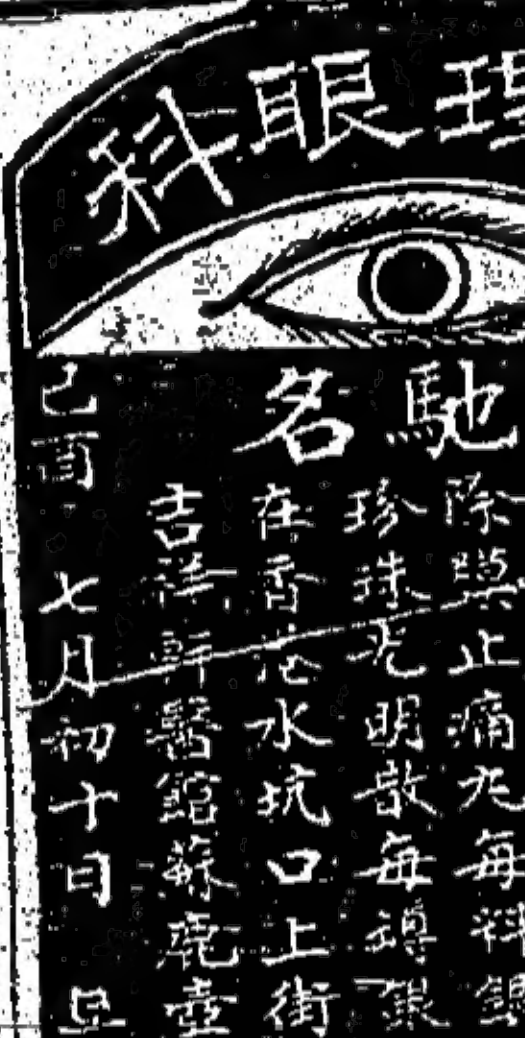 理眼科
馳名
除翳止痛丸每料銀
珍珠光明散每罇銀
在香港水坑口上街
吉祥軒醫館蘇鹿壺
己酉 七月初十日 旦